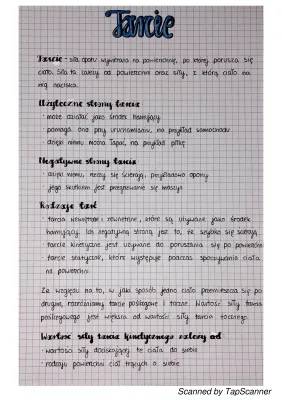 Tarcie
Tarcie - siła oporu wywierana na powierzchnię, po której porusza się
ciało. Siła ta zależy od powierzchni oraz siły, z którą ciało na
nią naciska.
Użyteczne strony tarcia
· może działać jako środek hamujący
· pomaga ona przy uruchomianiu, na przykład samochodu
· dzięki niemu można łapać, na przykład piłkę
Negatywne strony tarcia
· dzięki niemu, rzeczy się ścierają, przykładowo opony
· jego skutkiem jest przegrzewanie się maszyn
Rodzaje tarć
· tarcia wewnętrzne i zewnętrzne, które są używane jako środek
hamujący. Ich negatywną stroną jest to, że szybko się ścierają
· tarcie kinetyczne jest używane do poruszania się po powierzchni
· tarcie statyczne, które występuje podczas spoczywania ciała
na powierzchni
Ze względu na to, w jaki sposób jedno ciało przemieszcza się po
drugim, rozróżniamy tarcie poślizgowe i toczne. Wartość siły tarcia
poślizgowego jest większa od wartości siły tarcia tocznego.
Wartość siły tarcia kinetycznego zależy od
· wartości siły dociskającej te ciała do siebie
· rodzaju powierzchni ciał trących o siebie
Scanned by TapScanner